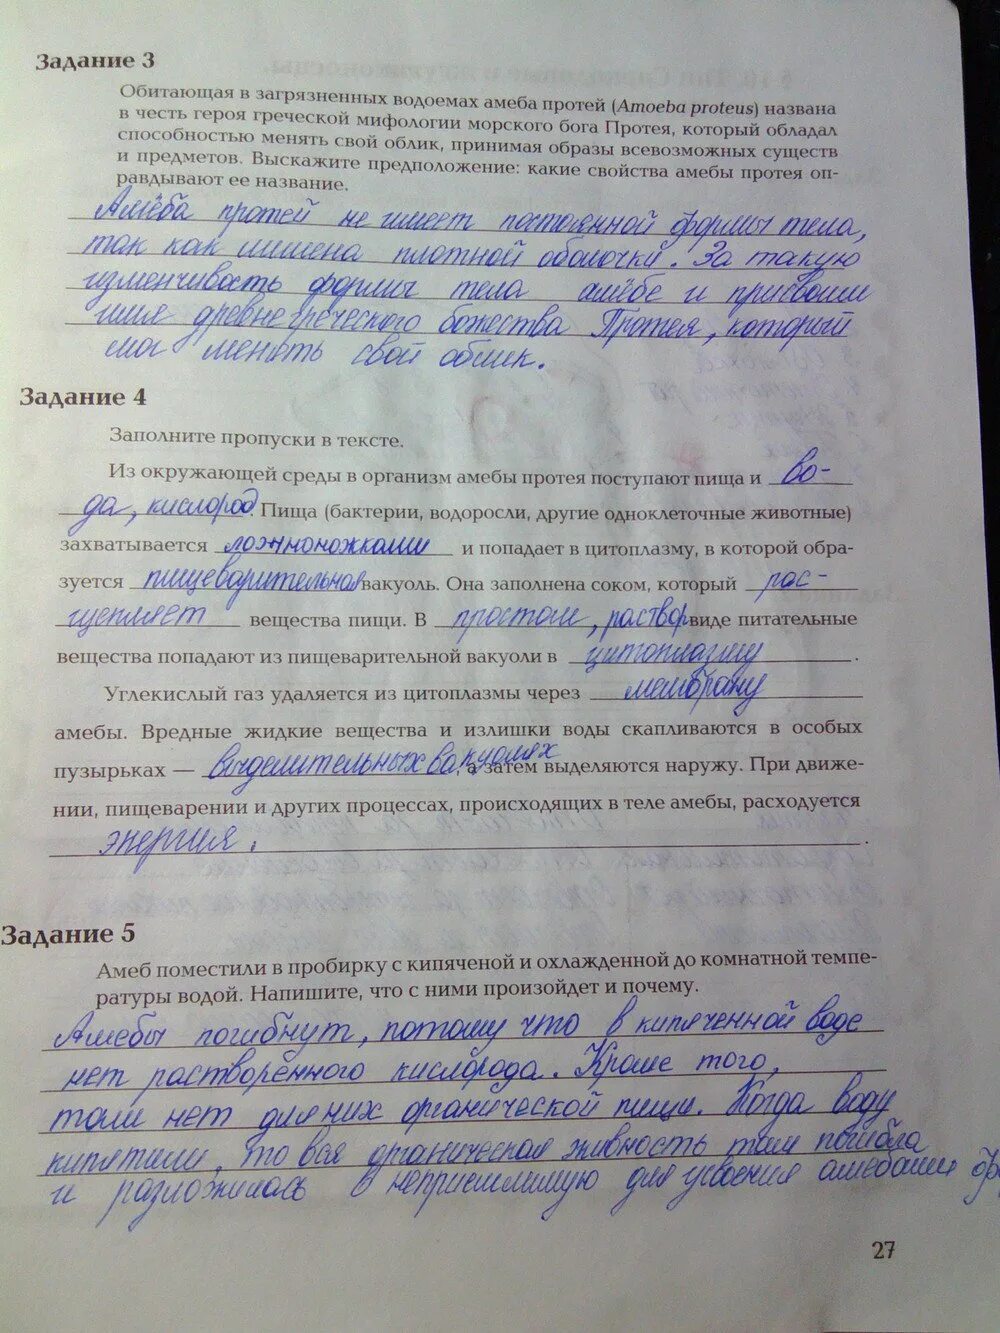 Задание 3
Обитающая в загрязненных водоемах амеба протей (Amoeba proteus) названа
в честь героя греческой мифологии морского бога Протея, который обладал
способностью менять свой облик, принимая образы всевозможных существ
и предметов. Выскажите предположение: какие свойства амебы протея оп-
равдывают ее название.
Амёба протей не имеет постоянной формы тела,
так как лишена плотной оболочки. За такую
изменчивость формы тела амёбе и присвоили
имя древнегреческого божества Протея, который
мог менять свой облик.
Задание 4
Заполните пропуски в тексте.
Из окружающей среды в организм амебы протея поступают пища и во-
да, кислород. Пища (бактерии, водоросли, другие одноклеточные животные)
захватывается ложноножками и попадает в цитоплазму, в которой обра-
зуется пищеварительная вакуоль. Она заполнена соком, который рас-
щепляет вещества пищи. В простом, раствор виде питательные
вещества попадают из пищеварительной вакуоли в цитоплазму.
Углекислый газ удаляется из цитоплазмы через мембрану
амебы. Вредные жидкие вещества и излишки воды скапливаются в особых
пузырьках — выделительных вакуолях, а затем выделяются наружу. При движе-
нии, пищеварении и других процессах, происходящих в теле амебы, расходуется
энергия.
Задание 5
Амеб поместили в пробирку с кипяченой и охлажденной до комнатной темпе-
ратуры водой. Напишите, что с ними произойдет и почему.
Амебы погибнут, потому что в кипяченной воде
нет растворённого кислорода. Кроме того,
там нет для них органической пищи. Когда воду
кипятили, то вся органическая живность там погибла
и разложилась в неприемлимую для усвоения амебами ф
27